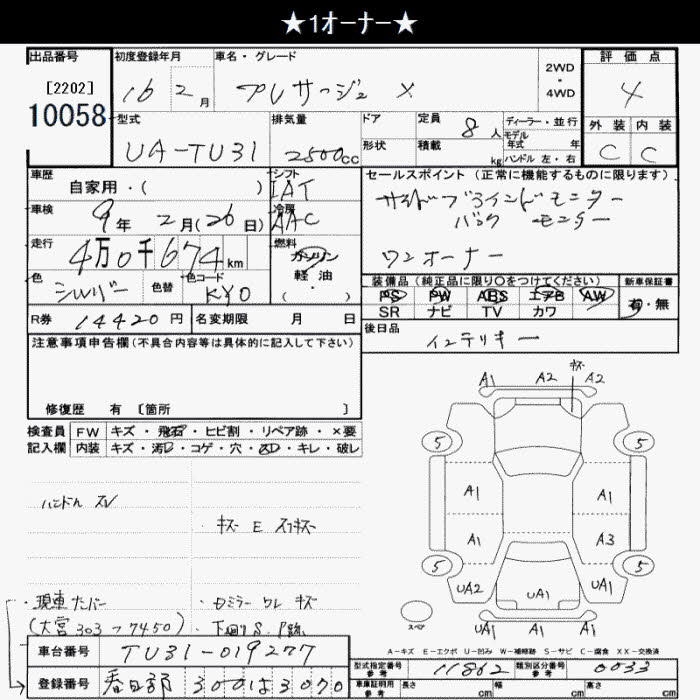 ★1オーナー★
出品番号
[2202]
10058
初度登録年月
16 2月
車名・グレード
プレサージュ X
2WD
・
4WD
評価点
4
型式
UA-TU31
排気量
2500cc
ドア
形状
定員 8人
積載 kg
ディーラー・並行
モデル
年式 年
ハンドル 左・右
外装 内装
C C
車歴
自家用・( )
シフト
IAT
セールスポイント (正常に機能するものに限ります)
サイドブラインドモニター
バック モニター
ワンオーナー
車検
9年 2月(26日)
冷房
AAC
走行
4万0千674km
燃料
ガソリン
軽油
( ・ )
色
シルバー
色替
色コード
KY0
装備品 (純正品に限り〇をつけてください)
PS PW ABS エアB AW
SR ナビ TV カワ
新車保証書
有・無
R券 14420円
名変期限 月 日
後日品
インテリキー
注意事項申告欄(不具合内容等は具体的に記入して下さい)
修復歴 有 [箇所 ]
検査員
記入欄
FW キズ・飛石・ヒビ割・リペア跡・×要
内装 キズ・汚レ・コゲ・穴・凹・キレ・破レ
ハンドル スレ
・キズ E スリキズ
・現車ナンバー
(大宮303 フ 7450)
・Dミラー ワレ キズ
・下廻り S.
車台番号 TU31-019277
登録番号 春日部 300 は 3070
キズ
A1 A2 A2
5 5
A1 A1
A1 A3
5 5
UA2 UA1 UA1
スペア
UA1 A1 A1
A-キズ E-エクボ U-凹み W-補修跡 S-サビ C-腐食 XX-交換済
型式指定番号
参考
11862
類別区分番号
参考
0033
車庫証明用
参考
長さ cm 幅 cm 高さ cm